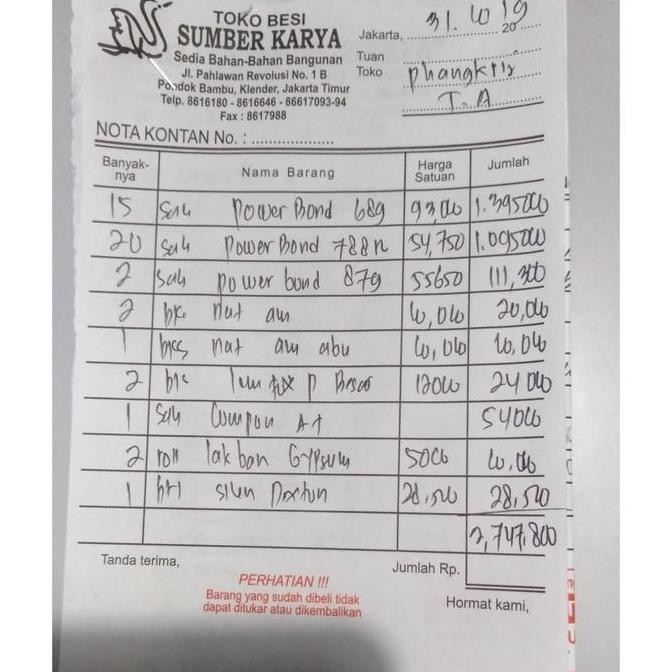 TOKO BESI
SUMBER KARYA
Sedia Bahan-Bahan Bangunan
Jl. Pahlawan Revolusi No. 1 B
Pondok Bambu, Klender, Jakarta Timur
Telp. 8616180 - 8616646 - 86617093-94
Fax : 8617988
Jakarta, 31. 10 19 20
Tuan
Toko
T. A
NOTA KONTAN No. :
Banyak-nya Nama Barang Harga Satuan Jumlah
15 sak power Bond 689 93,000 1.395000
20 sak power Bond 788 54,750 1.095000
2 sak power bond 879 55650 111,300
2 nat am 10,000 20,000
1 nat am abu 10,000 10,000
2 lem fox p Besar 12000 24000
1 sak Compon A+ 54000
2 roll lakban Gypsum 5000 10,000
1 28,500 28,500
2,747,800
Tanda terima,
Jumlah Rp.
PERHATIAN !!!
Barang yang sudah dibeli tidak
dapat ditukar atau dikembalikan
Hormat kami,